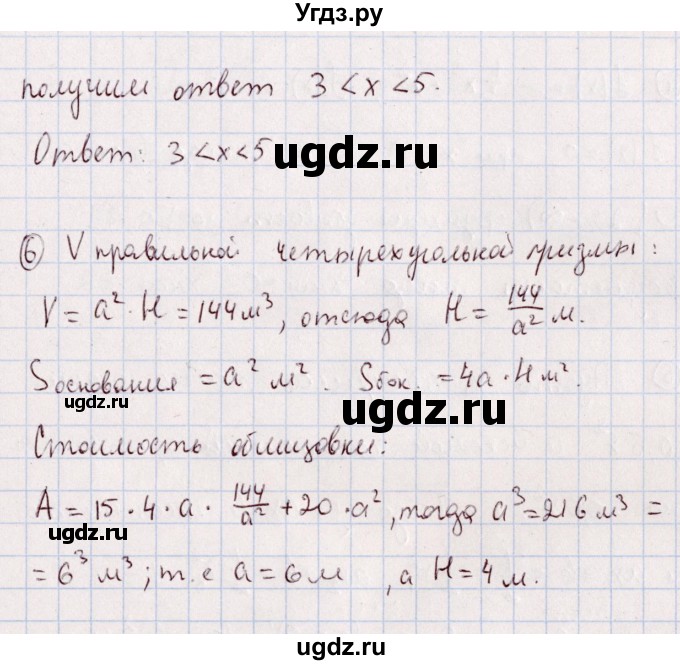 Угдз.ру
получим ответ 3 < x < 5.
Ответ: 3 < x < 5
ugdz.ru
⑥ V правильной четырехугольной призмы:
V = a² · H = 144 м³, отсюда H = 144/a² м.
Sоснования = a² м². Sбок. = 4a · H м².
ugdz.ru
ugdz.ru
Стоимость облицовки:
A = 15 · 4 · a · 144/a² + 20 · a², тогда a³ = 216 м³ =
ugdz.ru
= 6³ м³; т.е a = 6 м, а H = 4 м.
ugdz.ru